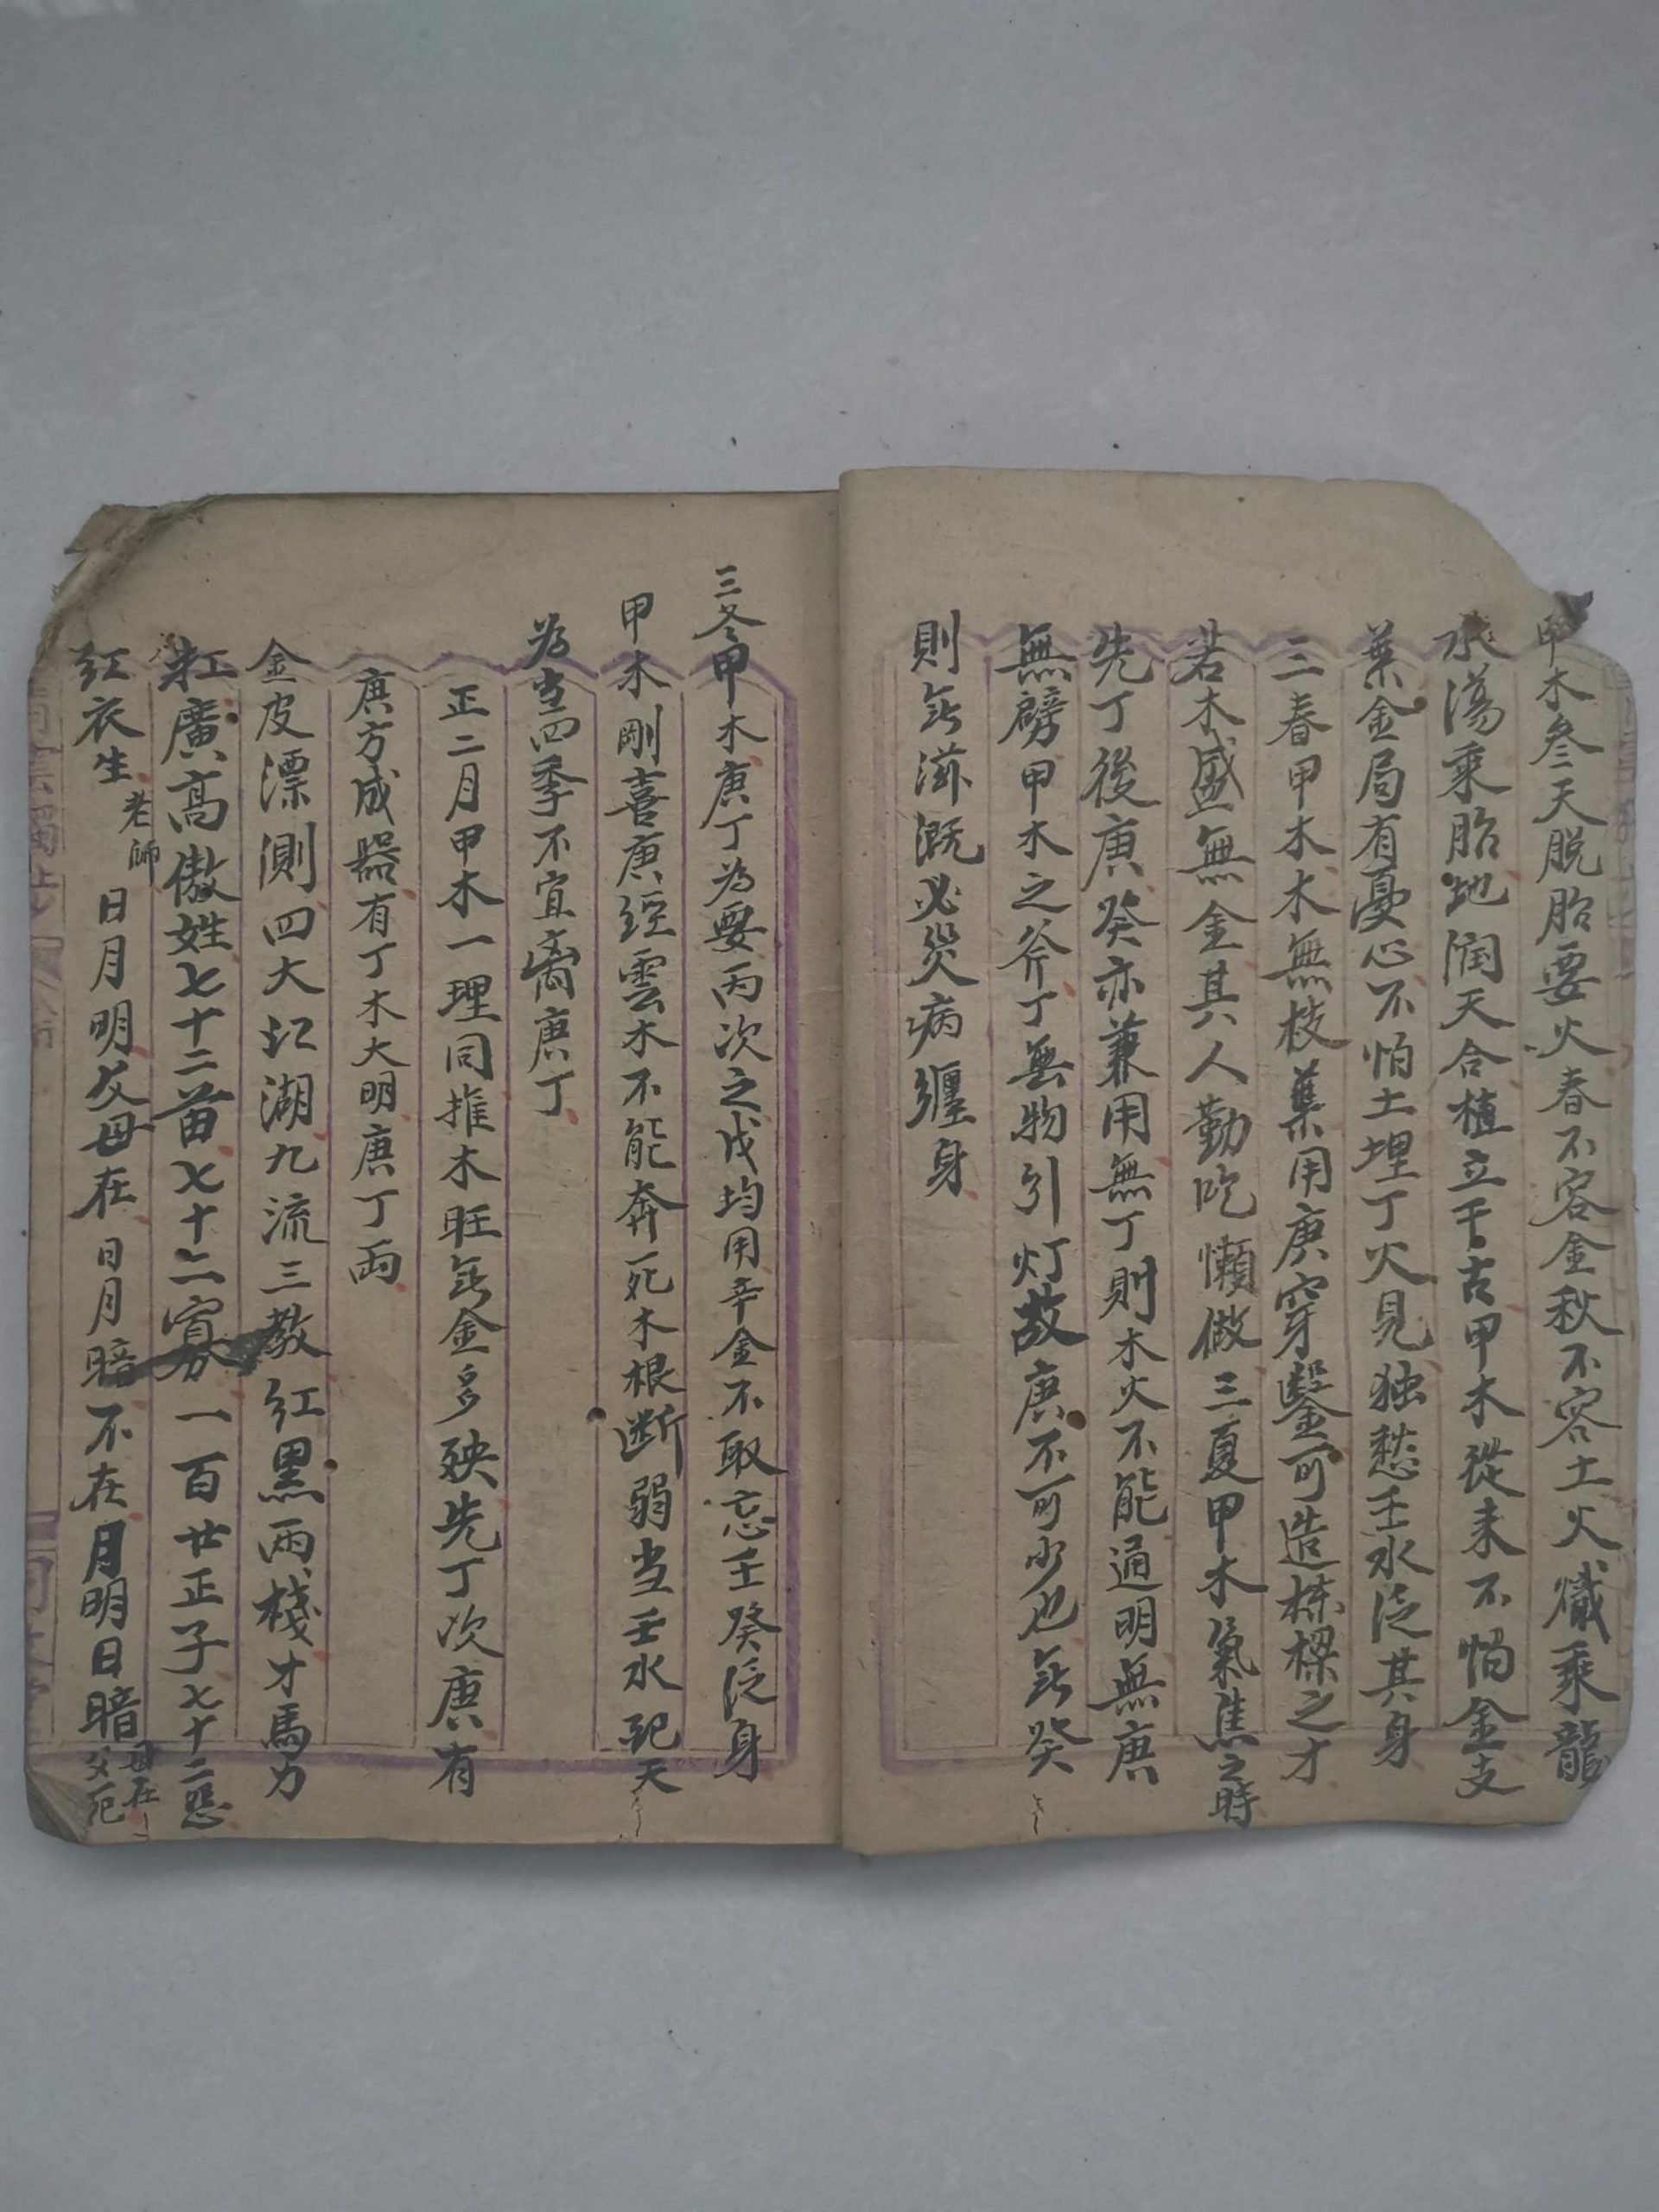 甲木叁天脱胎要火春不容金秋不容土火熾乘龍
水蕩乘胎地润天合植立千古甲木從来不怕金支
葉金局有憂心不怕土埋丁火見独愁壬水泛其身
三春甲木木無枝葉用庚穿鑿可造棟樑之才
若木盛無金其人勤吃懶做三夏甲木氣焦之時
先丁後庚癸亦兼用無丁則木火不能通明無庚
無劈甲木之斧丁無物引灯故庚不可少也無癸
則無滋溉必災病纏身
三冬甲木庚丁為要丙次之戊均用辛金不取忘壬癸泛身
甲木剛喜庚經雲木不能奔死木根断弱当壬水記天
為生四季不宜离庚丁
正二月甲木一理同推木旺無金多殃先丁次庚有
庚方成器有丁木大明庚丁両
金皮漂測四大江湖九流三教紅黑両棧才馬力
廣高傲姓七十二苗七十二寡一百廿正子七十二惡
红衣生老師日月明父母在日月暗不在月明日暗母在父死